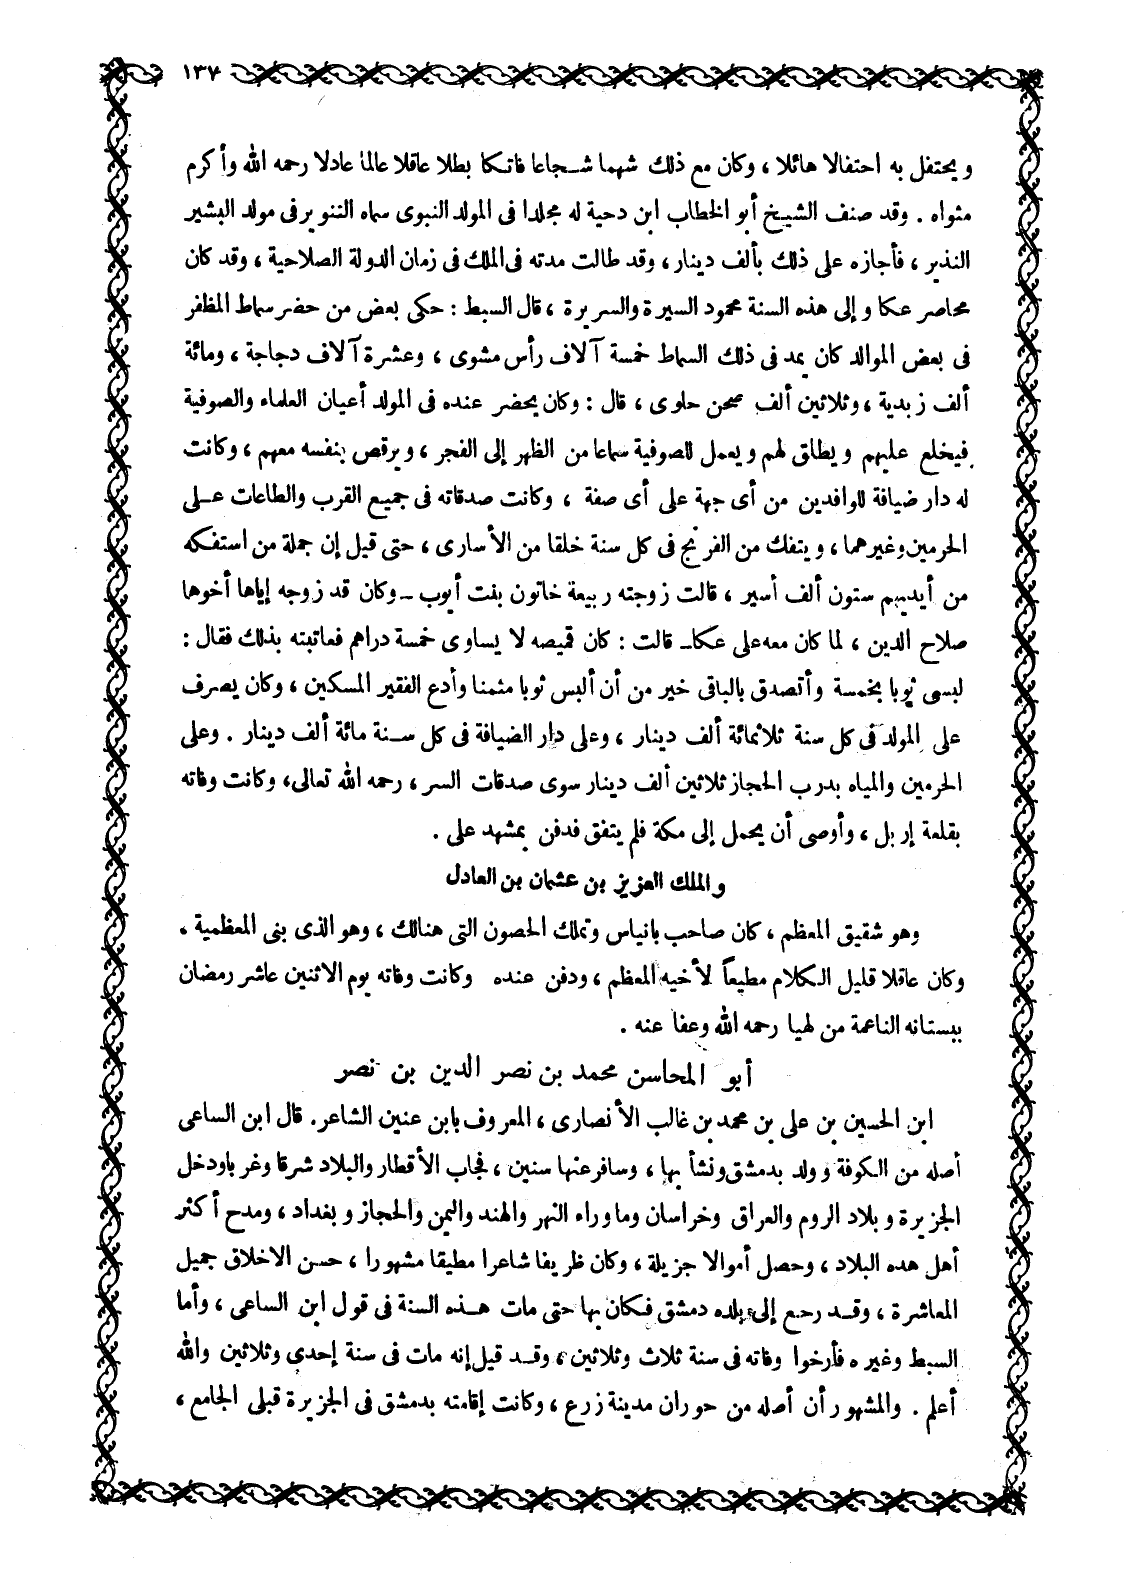 ١٣٧
ويحتفل به احتفالا هائلا ، وكان مع ذلك شهما شجاعا فاتكا بطلا عاقلا عالما عادلا رحمه الله وأكرم
مثواه . وقد صنف الشيخ أبو الخطاب ابن دحية له مجلدا فى المولد النبوى سماه التنوير فى مولد البشير
النذير ، فأجازه على ذلك بألف دينار ، وقد طالت مدته فى الملك فى زمان الدولة الصلاحية ، وقد كان
محاصر عكا و إلى هذه السنة محمود السيرة والسريرة ، قال السبط : حكى بعض من حضر سماط المظفر
فى بعض الموالد كان يمد فى ذلك السماط خمسة آلاف رأس مشوى ، وعشرة آلاف دجاجة ، ومائة
ألف زبدية ، وثلاثين ألف صحن حلوى ، قال : وكان يحضر عنده فى المولد أعيان العلماء والصوفية
فيخلع عليهم ويطلق لهم ويعمل للصوفية سماعا من الظهر إلى الفجر ، ويرقص بنفسه معهم ، وكانت
له دار ضيافة للوافدين من أى جهة على أى صفة ، وكانت صدقاته فى جميع القرب والطاعات على
الحرمين وغيرهما ، ويتفك من الفرنج فى كل سنة خلقا من الأسارى ، حتى قيل إن جملة من استفكه
من أيديهم ستون ألف أسير ، قالت زوجته ربيعة خاتون بنت أيوب ــ وكان قد زوجه إياها أخوها
صلاح الدين ، لما كان معه على عكا ــ قالت : كان قميصه لا يساوى خمسة دراهم فعاتبته بذلك فقال :
لبسى ثوبا بخمسة وأتصدق بالباقى خير من أن ألبس ثوبا مثمنا وأدع الفقير المسكين ، وكان يصرف
على المولد فى كل سنة ثلاثمائة ألف دينار ، وعلى دار الضيافة فى كل سنة مائة ألف دينار . وعلى
الحرمين والمياه بدرب الحجاز ثلاثين ألف دينار سوى صدقات السر ، رحمه الله تعالى، وكانت وفاته
بقلعة إربل ، وأوصى أن يحمل إلى مكة فلم يتفق فدفن بمشهد على .
والملك العزيز بن عثمان بن العادل
وهو شقيق المعظم ، كان صاحب بانياس وتملك الحصون التى هنالك ، وهو الذى بنى المعظمية .
وكان عاقلا قليل الكلام مطيعاً لأخيه المعظم ، ودفن عنده وكانت وفاته يوم الاثنين عاشر رمضان
ببستانه الناعمة من لهيا رحمه الله وعفا عنه .
أبو المحاسن محمد بن نصر الدين بن نصر
ابن الحسين بن على بن محمد بن غالب الأنصارى ، المعروف بابن عنين الشاعر. قال ابن الساعى
أصله من الكوفة وولد بدمشق ونشأ بها ، وسافر عنها سنين ، فجاب الأقطار والبلاد شرقا وغربا ودخل
الجزيرة وبلاد الروم والعراق وخراسان وما وراء النهر والهند واليمن والحجاز وبغداد ، ومدح أكثر
أهل هده البلاد ، وحصل أموالا جزيلة ، وكان ظريفا شاعرا مطيقا مشهورا ، حسن الاخلاق جميل
المعاشرة ، وقد رجع إلى بلده دمشق فكان بها حتى مات هذه السنة فى قول ابن الساعى ، وأما
السبط وغيره فأرخوا وفاته فى سنة ثلاث وثلاثين ، وقد قيل إنه مات فى سنة إحدى وثلاثين والله
أعلم . والمشهور أن أصله من حوران مدينة زرع ، وكانت إقامته بدمشق فى الجزيرة قبلى الجامع ،